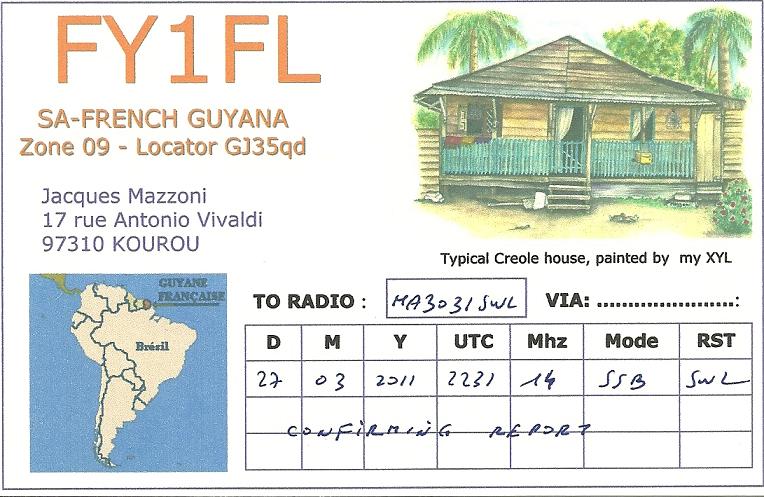 FY1FL
SA-FRENCH GUYANA
Zone 09 - Locator GJ35qd
Jacques Mazzoni
17 rue Antonio Vivaldi
97310 KOUROU
Typical Creole house, painted by my XYL
GUYANE
FRANÇAISE
Brésil
TO RADIO : MA3031SWL VIA: .......................:
D M Y UTC Mhz Mode RST
27 03 2011 2231 14 SSB SWL
CONFIRMING REPORT